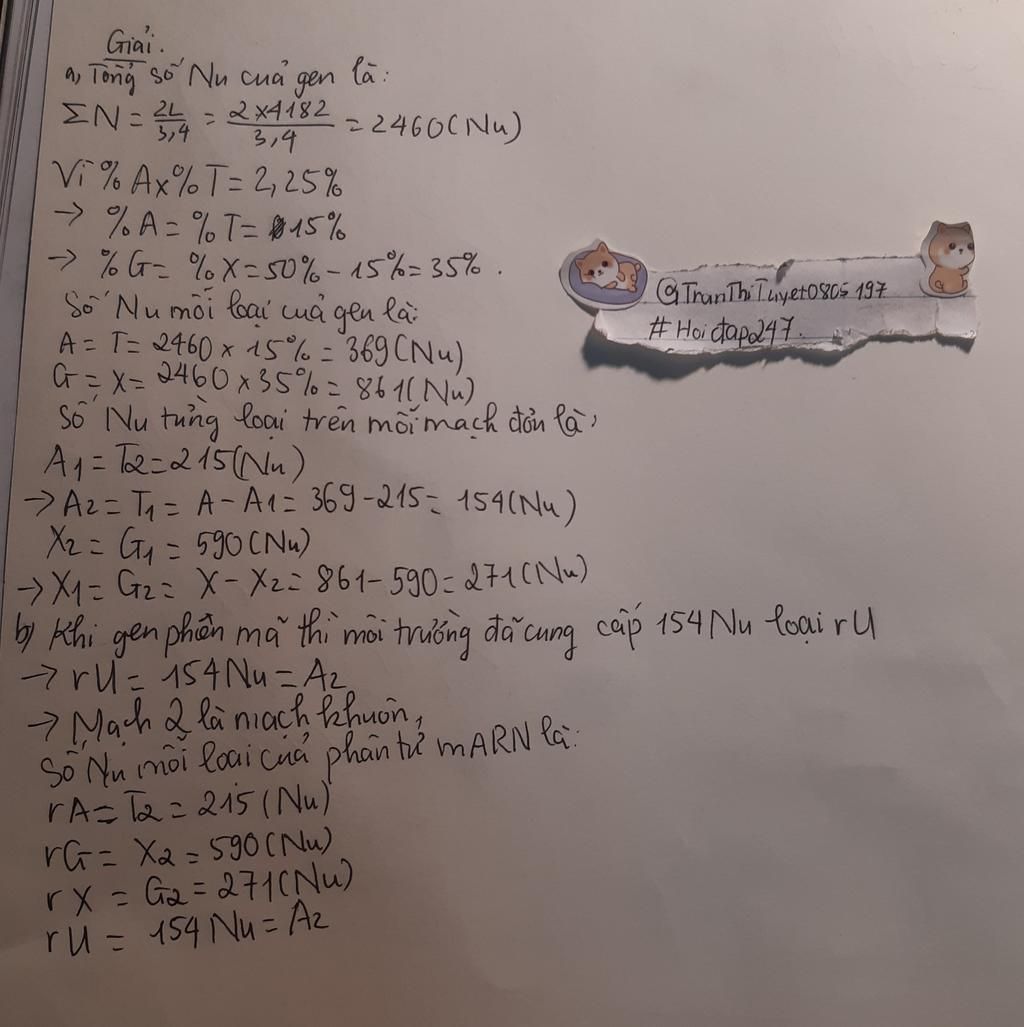 Giải.
a, Tổng số Nu của gen là:
ΣN = 2L/3,4 = 2x4182/3,4 = 2460(Nu)
Vì %Ax%T = 2,25%
→ %A = %T = 15%
→ %G = %X = 50% - 15% = 35%.
Số Nu mỗi loại của gen là:
A = T = 2460 x 15% = 369(Nu)
G = X = 2460 x 35% = 861(Nu)
Số Nu từng loại trên mỗi mạch đơn là,
A1 = T2 = 215(Nu)
→ A2 = T1 = A - A1 = 369 - 215 = 154(Nu)
X2 = G1 = 590(Nu)
→ X1 = G2 = X - X2 = 861 - 590 = 271(Nu)
b, Khi gen phiên mã thì môi trường đã cung cấp 154 Nu loại rU
→ rU = 154 Nu = A2
→ Mạch 2 là mạch khuôn,
Số Nu mỗi loại của phân tử mARN là:
rA = T2 = 215(Nu)
rG = X2 = 590(Nu)
rX = G2 = 271(Nu)
rU = 154 Nu = A2
@TranThiTuyet0805197
#Hoiđap247.